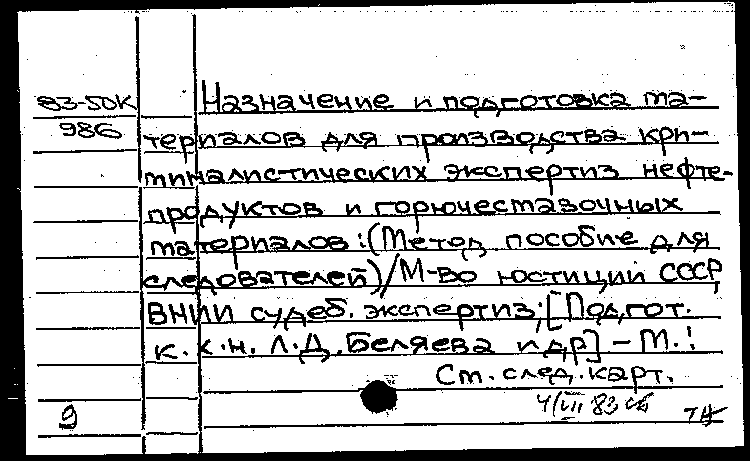 83-50К Назначение и подготовка ма-
986 териалов для производства кри-
миналистических экспертиз нефте-
продуктов и горючесмазочных
материалов: (Метод, пособие для
следователей) / М-во юстиции СССР,
ВНИИ судеб. экспертиз; [Подгот.
к.х.н. Л.Д. Беляева и др] - М.:
См. след. карт.
9 4/VII 83